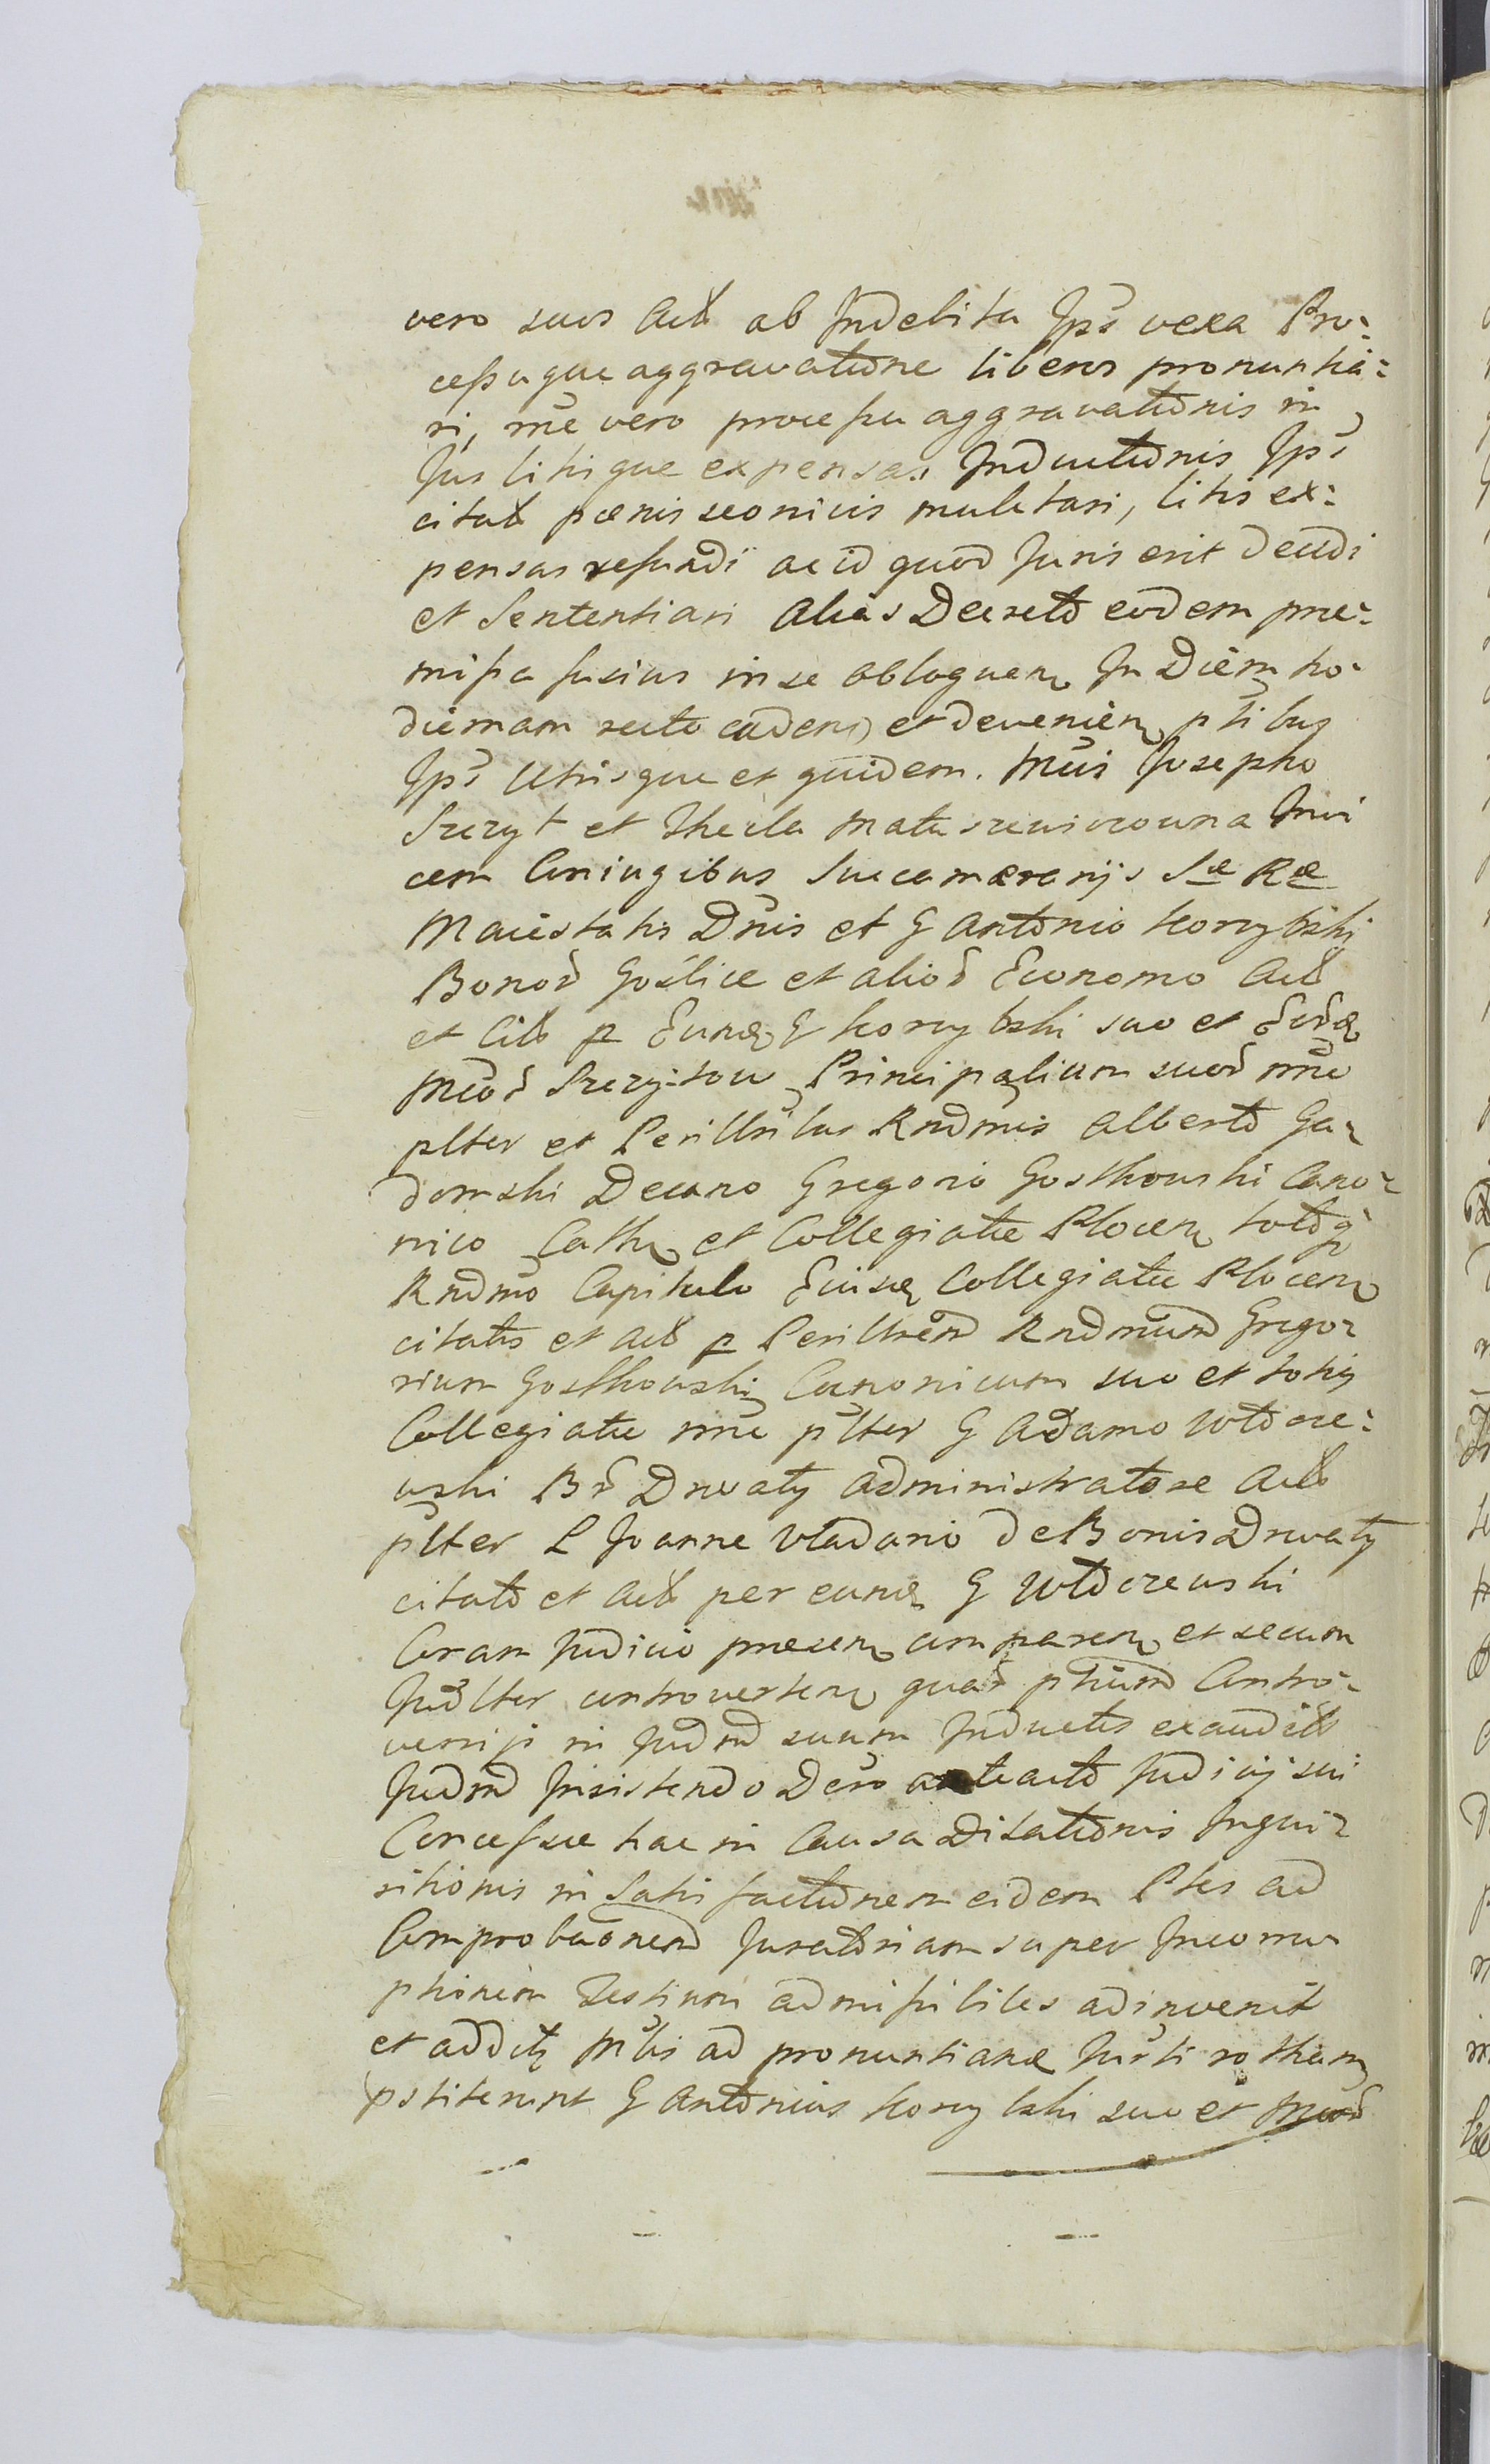 vero suos Act ab Indebita Ipš vexa Pro-
cessuque aggravatione liberos pronuntia-
ri, mē vero processu aggravationis in
Jus litisque expensas Inductionis Ipš
citat pœnis seonicis muletari, litis ex-
pensas refundi ac id quod Juris erit decidi
et Sententiari Alias Decreto eodem præ-
missa fusius in se obloquen In Diem ho-
diernam recte caden et devenien ptibus
Ipš Utrisque et quidem. Mcis Josepho
Szczyt et Thecla Matuszewiczowna Invi
cem Coniugibus Succamerarijs Sæ Ræ
Maiestatis Dnis et G Antonio Korzybski
Bonor Goslice et alior Economo Act
et Cit p Eund G Korzybski suo et Eord
Mcor Szczytow Principalium suor nne
plter et Perillribus Rndmis Alberto Ga-
domski Decano Gregorio Gostkowski Cano-
nico Cath et Collegiatæ Plocen totoq
Rndmo Capitulo Eiusd Collegiatæ Plocen
citatis et Act p Perillrem Rndmum Grego-
rium Gostkowski Canonicum suo et totius
Collegiatæ nne plter G Adamo Włocze-
wski Br Drwały Administratore Act
plter L Joanne Vładario de Bonis Drwały
citato et Act per eund G Włoczewski
Coram Judicio præsen comparen et secum
Judlter controverten quar ptium Contro-
versijs in Judm suum Inductis exauditis
Judm Insistendo Dero anteacto Judicij sui
Concessæ hac in Causa Dilationis Inqui-
sitionis in Satisfactionem eidem Ptes ad
Comprobaonem Juratoriam super Incorru-
ptionem Testium admissibiles adinvenit
et additis Mlis ad pronuntiand Jurti rotham
pstiterunt G Antonius Korzybski suo et Mcor